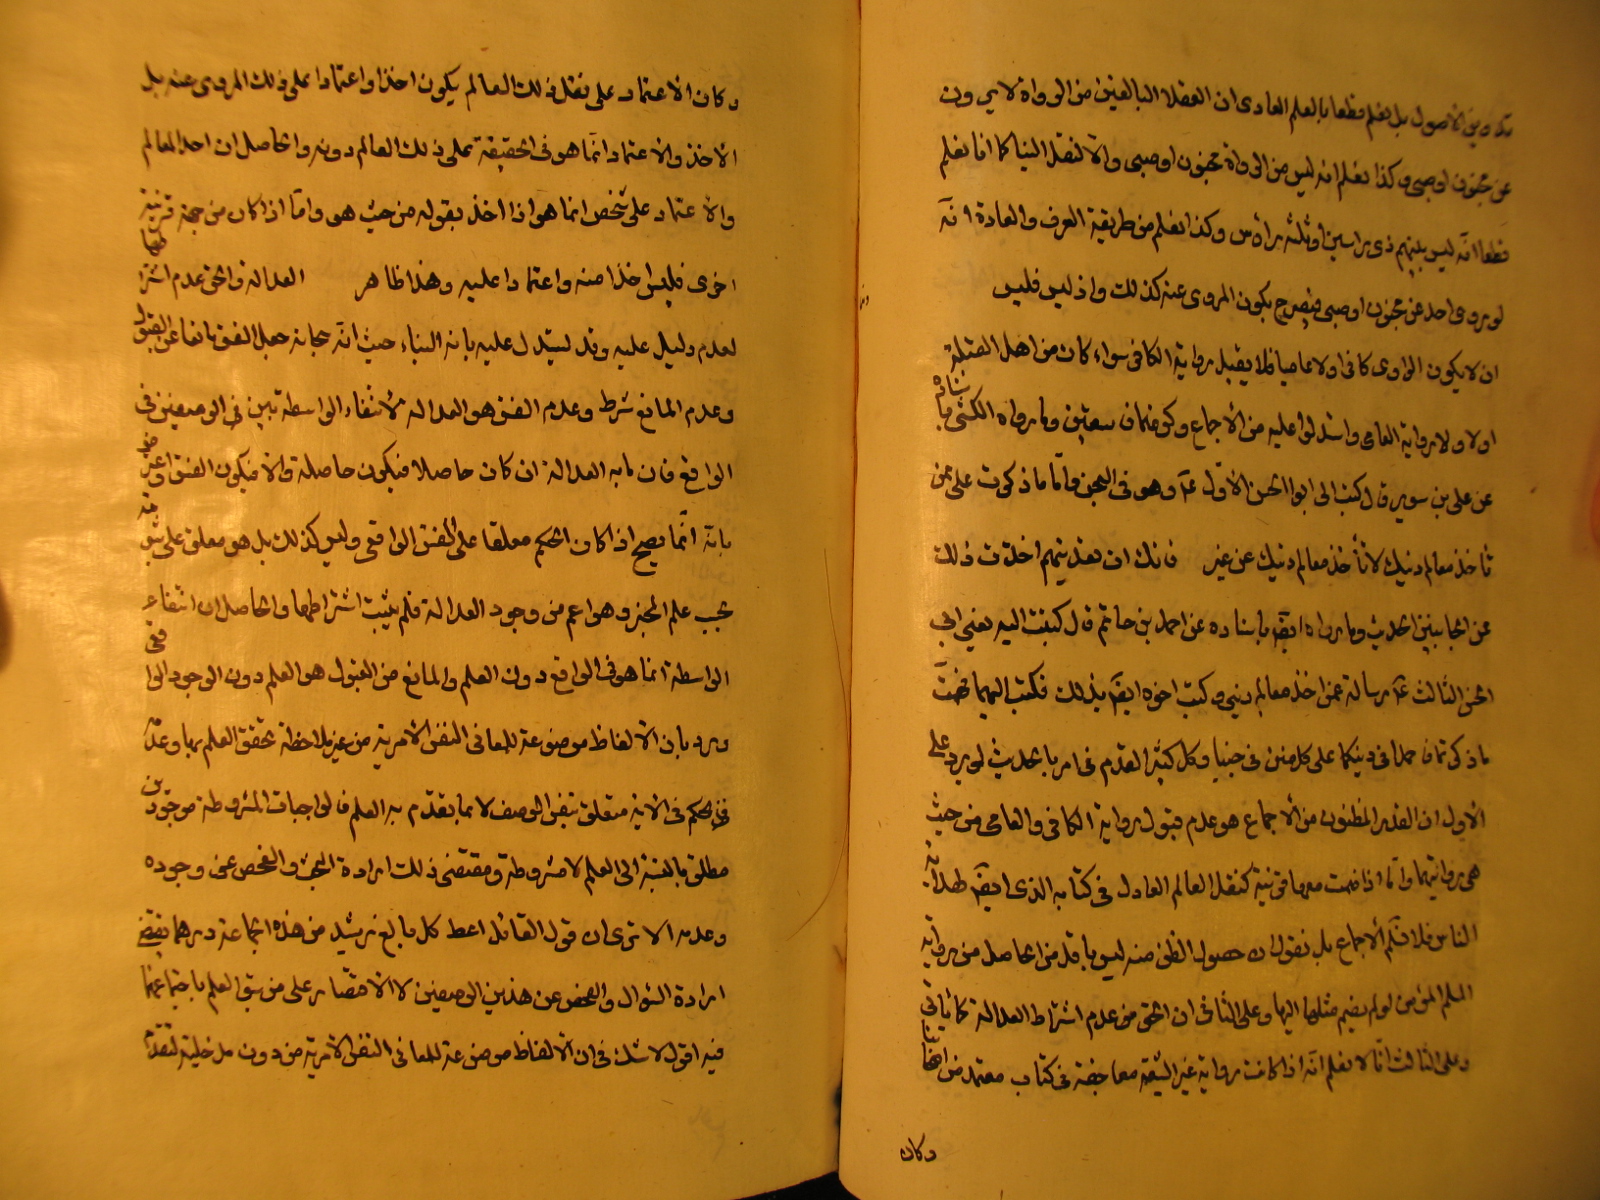 تدوين الاصول بل نعلم قطعا بالعلم العادى ان العقلاء البالغين من الرواة لا يروون
عن مجنون او صبى وكذا نعلم انه ليس من الرواة مجنون او صبى والا لنقل الينا كما انا نعلم
قطعا انه ليس بينهم ذى راسين او ثلثه رأوس وكذا نعلم من طريقية العرف والعادة انه
لو روى احد عن مجنون او صبى فيصرح بكون المروى عنه كذلك واذ ليس فليس
ان لا يكون الراوى كافرا ولا عاميا فلا يقبل رواية الكافر سواء كان من اهل القبلة
اولا ولا رواية العامى واستدلوا عليه من الاجماع وما رواه الكشى باسناده
عن على بن سويد قال كتب الى ابو الحسن الاول ع وهو فى السجن واما ما ذكرت يا على ممن
تأخذ معالم دينك لا تأخذ معالم دينك عن غير فانك ان تعديتهم اخذت ذلك
عن الخاينين الحديث وما رواه ايضا باسناده عن احمد بن حاتم قال كتبت اليه يعنى ابى
الحسن الثالث ع رسالة عمن اخذ معالم دينى وكتب اخوه ايضا بذلك فكتب اليهما فهمت
ما ذكرتما فى دينكما على كل مسن فى حبنا وكل كثير القدم فى امرنا الحديث لو يرد على
الاول ان القدر المظنون من الاجماع هو عدم قبول رواية الكافر والعامى من حيث
هى روايتهما واما اذا ضمت معها قرينة كنقل العالم العادل فى كتابه الذى
الناس فلا نسلم الاجماع بل نقول ان حصول الظن منه ليس باقل من الحاصل من رواية
المسلم المؤمن لو لم يضم مثلها اليها وعلى الثانى ان الحق من عدم اشتراط العدالة كما ياتى
وعلى الثالث انا لا نعلم انه اذا كانت رواية غير الشيعة فى كتاب معتمد من
وكان
وكان الاعتماد على نقل ذلك العالم يكون اخذا واعتمادا على ذلك المروى عنه بل
الاخذ والاعتماد انما هو فى الحقيقة على ذلك العالم دونه والحاصل ان اخذ المعالم
والاعتماد على شخص انما هو اذا اخذ بقوله من حيث هو واما اذا كان من جهة قرينة
اخرى فليس اخذا منه واعتمادا عليه وهذا ظاهر العدالة والحق عدم اشتراطها
لعدم دليل عليه وقد يستدل عليه بانه البناء حيث انه سبحانه جعل الفسق مانعا عن القبول
وعدم المانع شرط وعدم الفسق هو العدالة لانتفاء الواسطة بين الوصفين فى
الواقع فان ما به العدالة ان كان حاصلا فيكون حاصلة والا فيكون الفسق واعترض
بانه انما يصح اذا كان الحكم معلقا على الفسق الواقعى وليس كذلك بل هو معلق على
بحسب علم المخبر وهو اعم من وجود العدالة فلم يثبت اشتراطها والحاصل ان انتفاء
الواسطة انما هو فى الواقع دون العلم والمانع من القبول هو العلم دون الوجود الواقعى
ورد بان الالفاظ موضوعة للمعانى النفس الامرية من غير ملاحظة تحقق العلم بها وعدمه
فالحكم فى الاية متعلق بنفس الوصف لا بما تقدم به العلم فالواجبات المشروطة بوجود
مطلق بالنسبة الى العلم لا مشروطة ومقتضى ذلك ارادة البحث والفحص عن وجوده
وعدمه الا ترى ان قول القائل اعط كل بالغ رشيد من هذه الجماعة درهما يقتضى
ارادة السؤال والفحص عن هذين الوصفين لا الاقتصار على من سبق العلم باجتماعهما
فيه اقول لا شك فى ان الالفاظ موضوعة للمعانى النفس الامرية من دون مدخلية